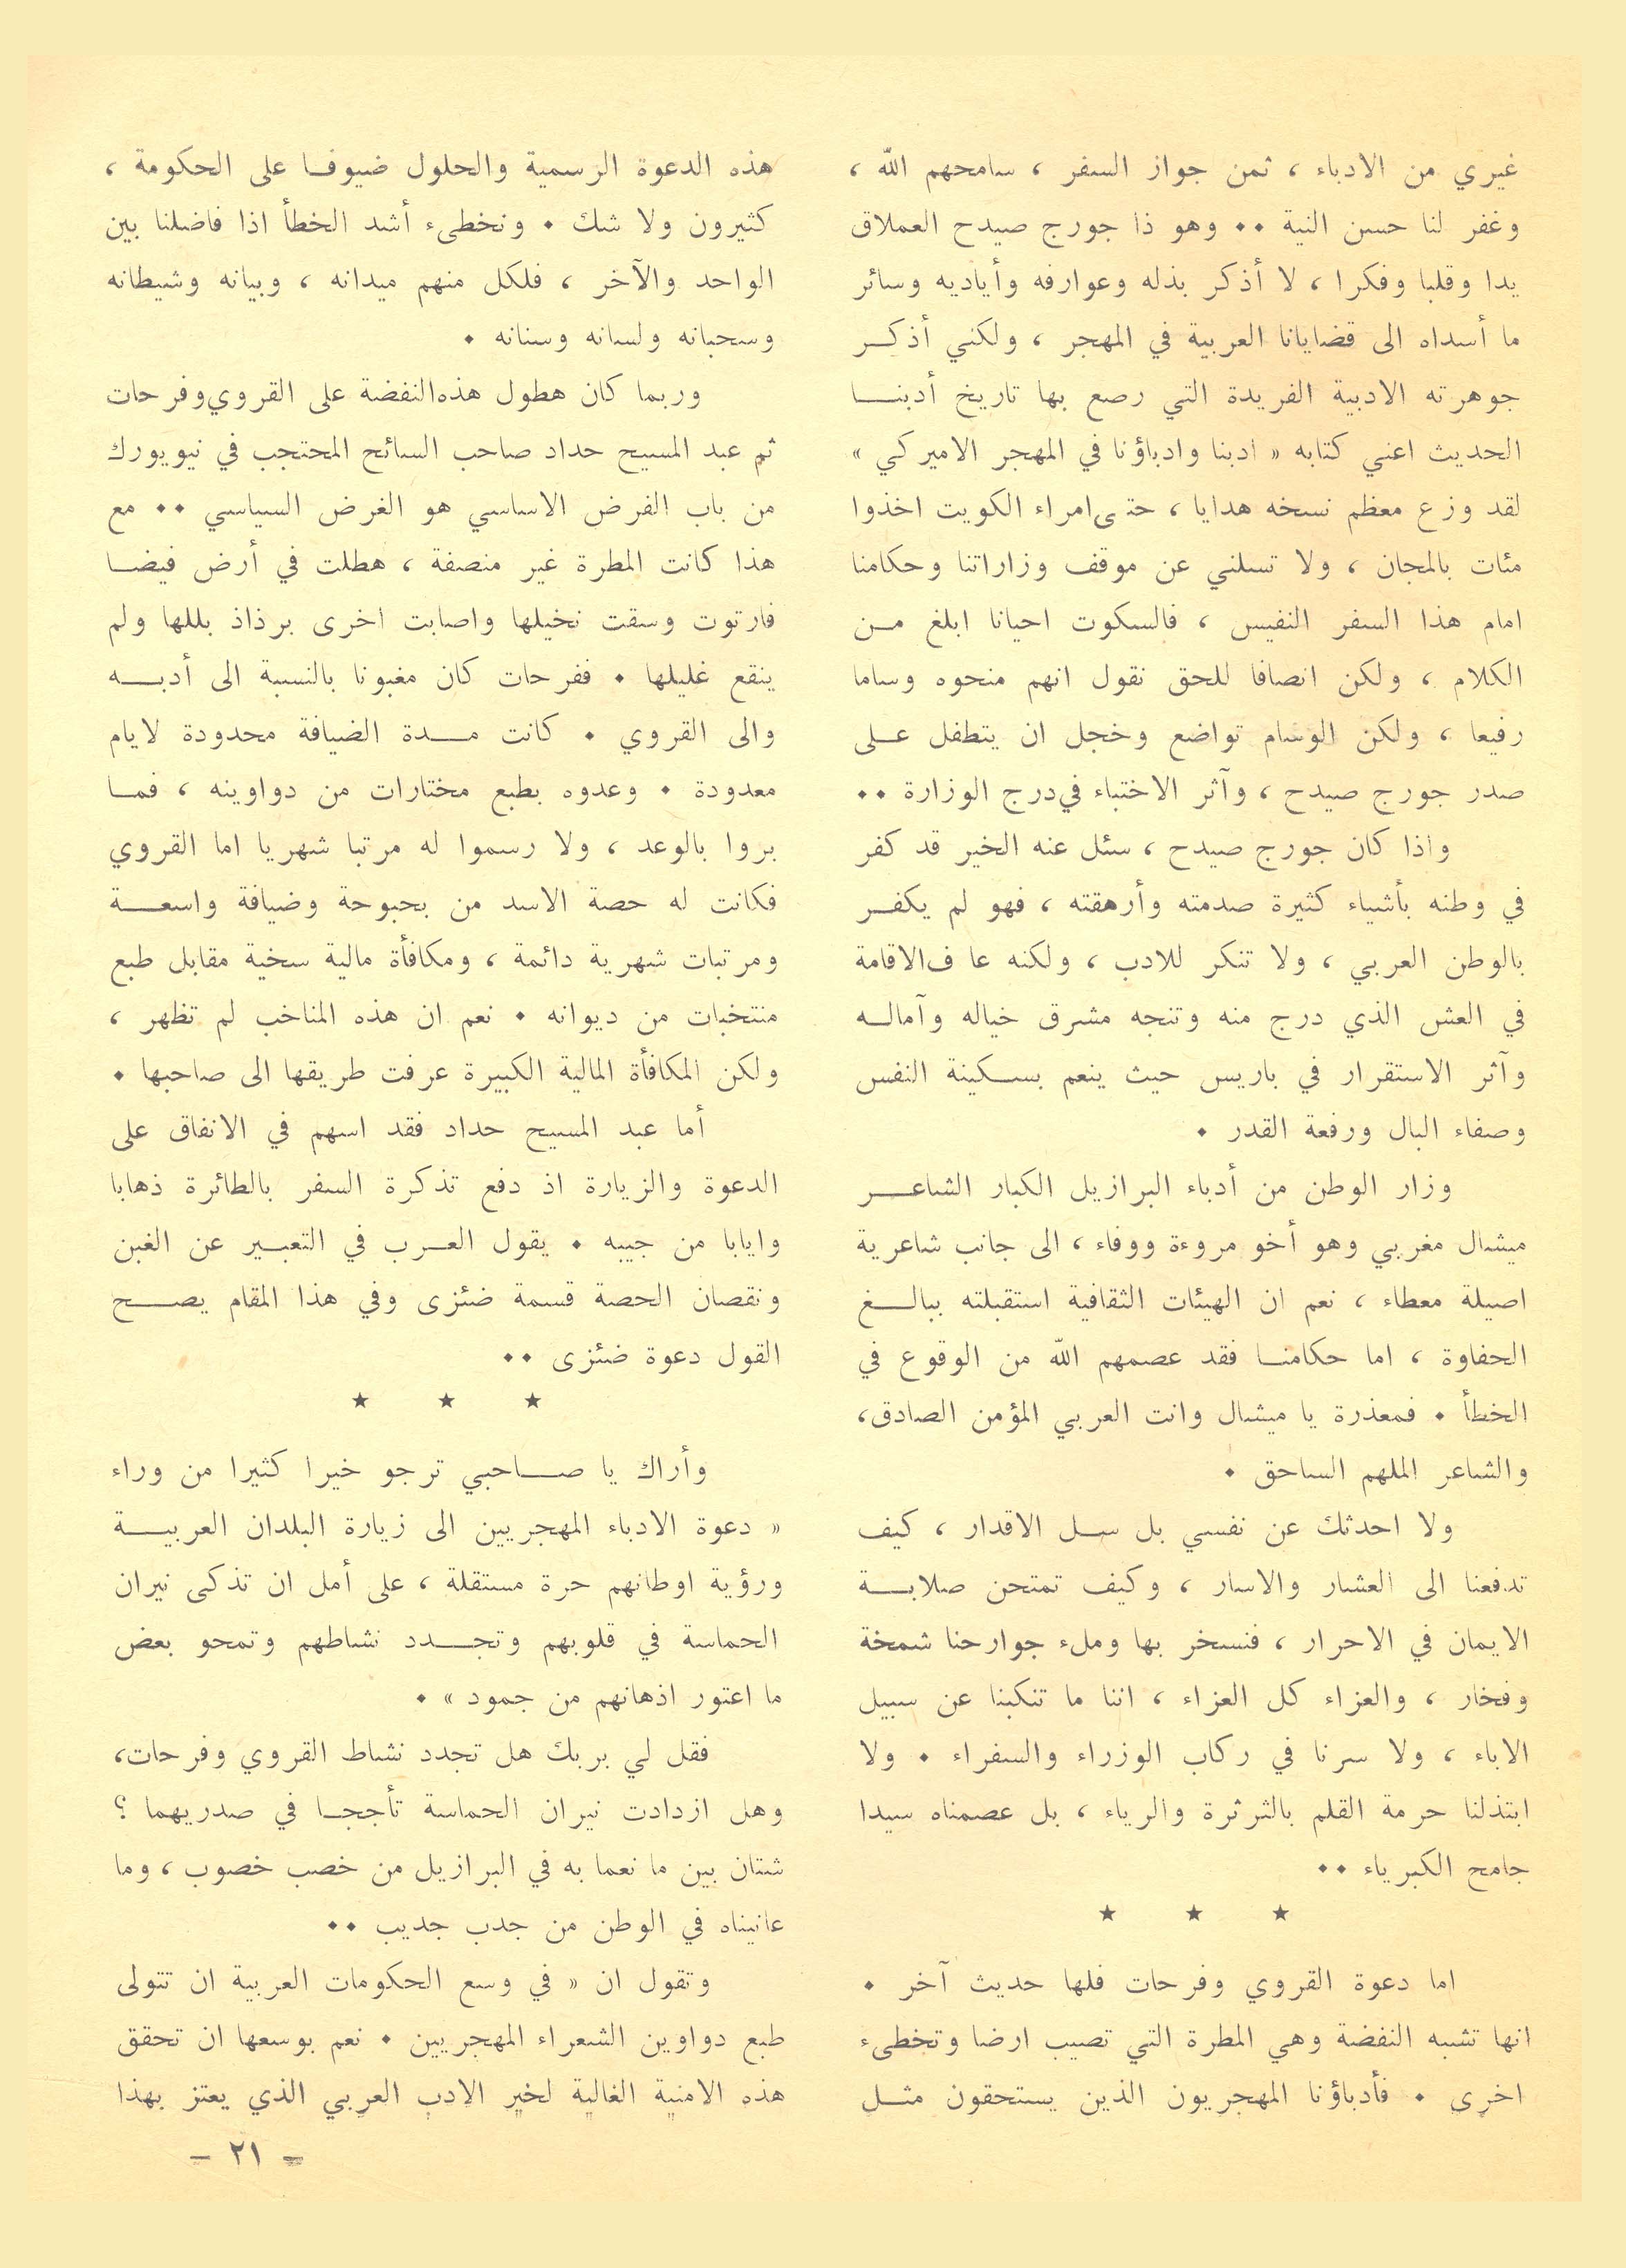 غيري من الادباء ، ثمن جواز السفر ، سامحهم الله ،
وغفر لنا حسن النية ٠٠ وهو ذا جورج صيدح العملاق
يدا وقلبا وفكرا ، لا أذكر بذله وعوارفه وأياديه وسائر
ما أسداه الى قضايانا العربية في المهجر ، ولكني أذكر
جوهرته الادبية الفريدة التي رصع بها تاريخ أدبنا
الحديث اعني كتابه « ادبنا وادباؤنا في المهجر الاميركي »
لقد وزع معظم نسخه هدايا ، حتى امراء الكويت اخذوا
مئات بالمجان ، ولا تسلني عن موقف وزاراتنا وحكامنا
امام هذا السفر النفيس ، فالسكوت احيانا ابلغ من
الكلام ، ولكن انصافا للحق نقول انهم منحوه وساما
رفيعا ، ولكن الوسام تواضع وخجل ان يتطفل على
صدر جورج صيدح ، وآثر الاختباء في درج الوزارة ٠٠
واذا كان جورج صيدح ، سئل عنه الخير قد كفر
في وطنه بأشياء كثيرة صدمته وأرهقته ، فهو لم يكفر
بالوطن العربي ، ولا تنكر للادب ، ولكنه عاف الاقامة
في العش الذي درج منه وتنجه مشرق خياله وآماله
وآثر الاستقرار في باريس حيث ينعم بسكينة النفس
وصفاء البال ورفعة القدر ٠
وزار الوطن من أدباء البرازيل الكبار الشاعر
ميشال مغربي وهو أخو مروءة ووفاء ، الى جانب شاعرية
اصيلة معطاء ، نعم ان الهيئات الثقافية استقبلته ببالغ
الحفاوة ، اما حكامنا فقد عصمهم الله من الوقوع في
الخطأ ٠ فمعذرة يا ميشال وانت العربي المؤمن الصادق،
والشاعر الملهم الساحق ٠
ولا احدثك عن نفسي بل سل الاقدار ، كيف
تدفعنا الى العشار والاسار ، وكيف تمتحن صلابة
الايمان في الاحرار ، فنسخر بها وملء جوارحنا شمخة
وفخار ، والعزاء كل العزاء ، اننا ما تنكبنا عن سبيل
الاباء ، ولا سرنا في ركاب الوزراء والسفراء ٠ ولا
ابتذلنا حرمة القلم بالثرثرة والرياء ، بل عصمناه سيدا
جامح الكبرياء ٠٠
★ ★ ★
اما دعوة القروي وفرحات فلها حديث آخر ٠
انها تشبه النفضة وهي المطرة التي تصيب ارضا وتخطىء
اخرى ٠ فأدباؤنا المهجريون الذين يستحقون مثل
هذه الدعوة الرسمية والحلول ضيوفا على الحكومة ،
كثيرون ولا شك ٠ ونخطىء أشد الخطأ اذا فاضلنا بين
الواحد والآخر ، فلكل منهم ميدانه ، وبيانه وشيطانه
وسحبانه ولسانه وسنانه ٠
وربما كان هطول هذه النفضة على القروي وفرحات
ثم عبد المسيح حداد صاحب السائح المحتجب في نيويورك
من باب الفرض الاساسي هو الغرض السياسي ٠٠ مع
هذا كانت المطرة غير منصفة ، هطلت في أرض فيضا
فارتوت وسقت نخيلها واصابت اخرى برذاذ بللها ولم
ينقع غليلها ٠ ففرحات كان مغبونا بالنسبة الى أدبه
والى القروي ٠ كانت مدة الضيافة محدودة لايام
معدودة ٠ وعدوه بطبع مختارات من دواوينه ، فما
بروا بالوعد ، ولا رسموا له مرتبا شهريا اما القروي
فكانت له حصة الاسد من بحبوحة وضيافة واسعة
ومرتبات شهرية دائمة ، ومكافأة مالية سخية مقابل طبع
منتخبات من ديوانه ٠ نعم ان هذه المناخب لم تظهر ،
ولكن المكافأة المالية الكبيرة عرفت طريقها الى صاحبها ٠
أما عبد المسيح حداد فقد اسهم في الانفاق على
الدعوة والزيارة اذ دفع تذكرة السفر بالطائرة ذهابا
وايابا من جيبه ٠ يقول العرب في التعبير عن الغبن
ونقصان الحصة قسمة ضئزى وفي هذا المقام يصح
القول دعوة ضئزى ٠٠
★ ★ ★
وأراك يا صاحبي ترجو خيرا كثيرا من وراء
« دعوة الادباء المهجريين الى زيارة البلدان العربية
ورؤية اوطانهم حرة مستقلة ، على أمل ان تذكى نيران
الحماسة في قلوبهم وتجدد نشاطهم وتمحو بعض
ما اعتور اذهانهم من جمود » ٠
فقل لي بربك هل تجدد نشاط القروي وفرحات،
وهل ازدادت نيران الحماسة تأججا في صدريهما ؟
شتان بين ما نعما به في البرازيل من خصب خصوب ، وما
عانيناه في الوطن من جدب جديب ٠٠
وتقول ان « في وسع الحكومات العربية ان تتولى
طبع دواوين الشعراء المهجريين ٠ نعم بوسعها ان تحقق
هذه الامنية الغالية لخير الادب العربي الذي يعتز بهذا
– ٢١ –